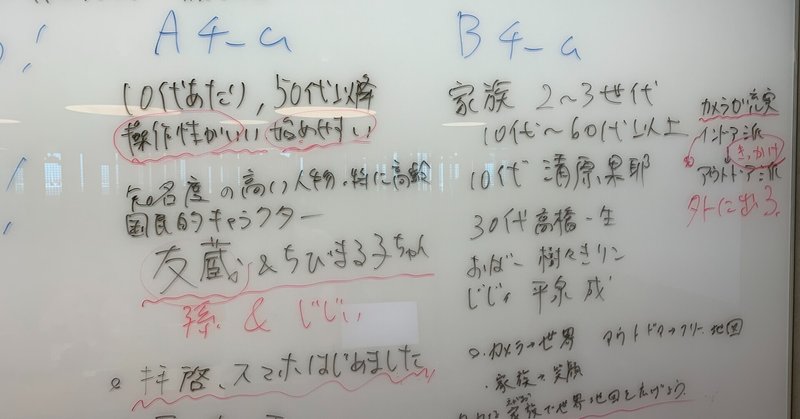 Aチーム
10代あたり,50代以降
操作性がいい 始めやすい
知名度の高い人物.特に高齢
国民的キャラクター
友蔵&ちびまる子ちゃん
孫 & じじい
拝啓、スマホはじめました
Bチーム
家族 2〜3世代
10代〜60代以上
10代 清原果耶
30代 高橋一生
おばー 樹々きりン
じじぃ 平泉 成
カメラ→世界 アウトドア→フリー、地図
・家族で実験
家族で世界地図を広げよう.
カメラが充実
インドア派
きっかけ
アウトドア派
外に出る.